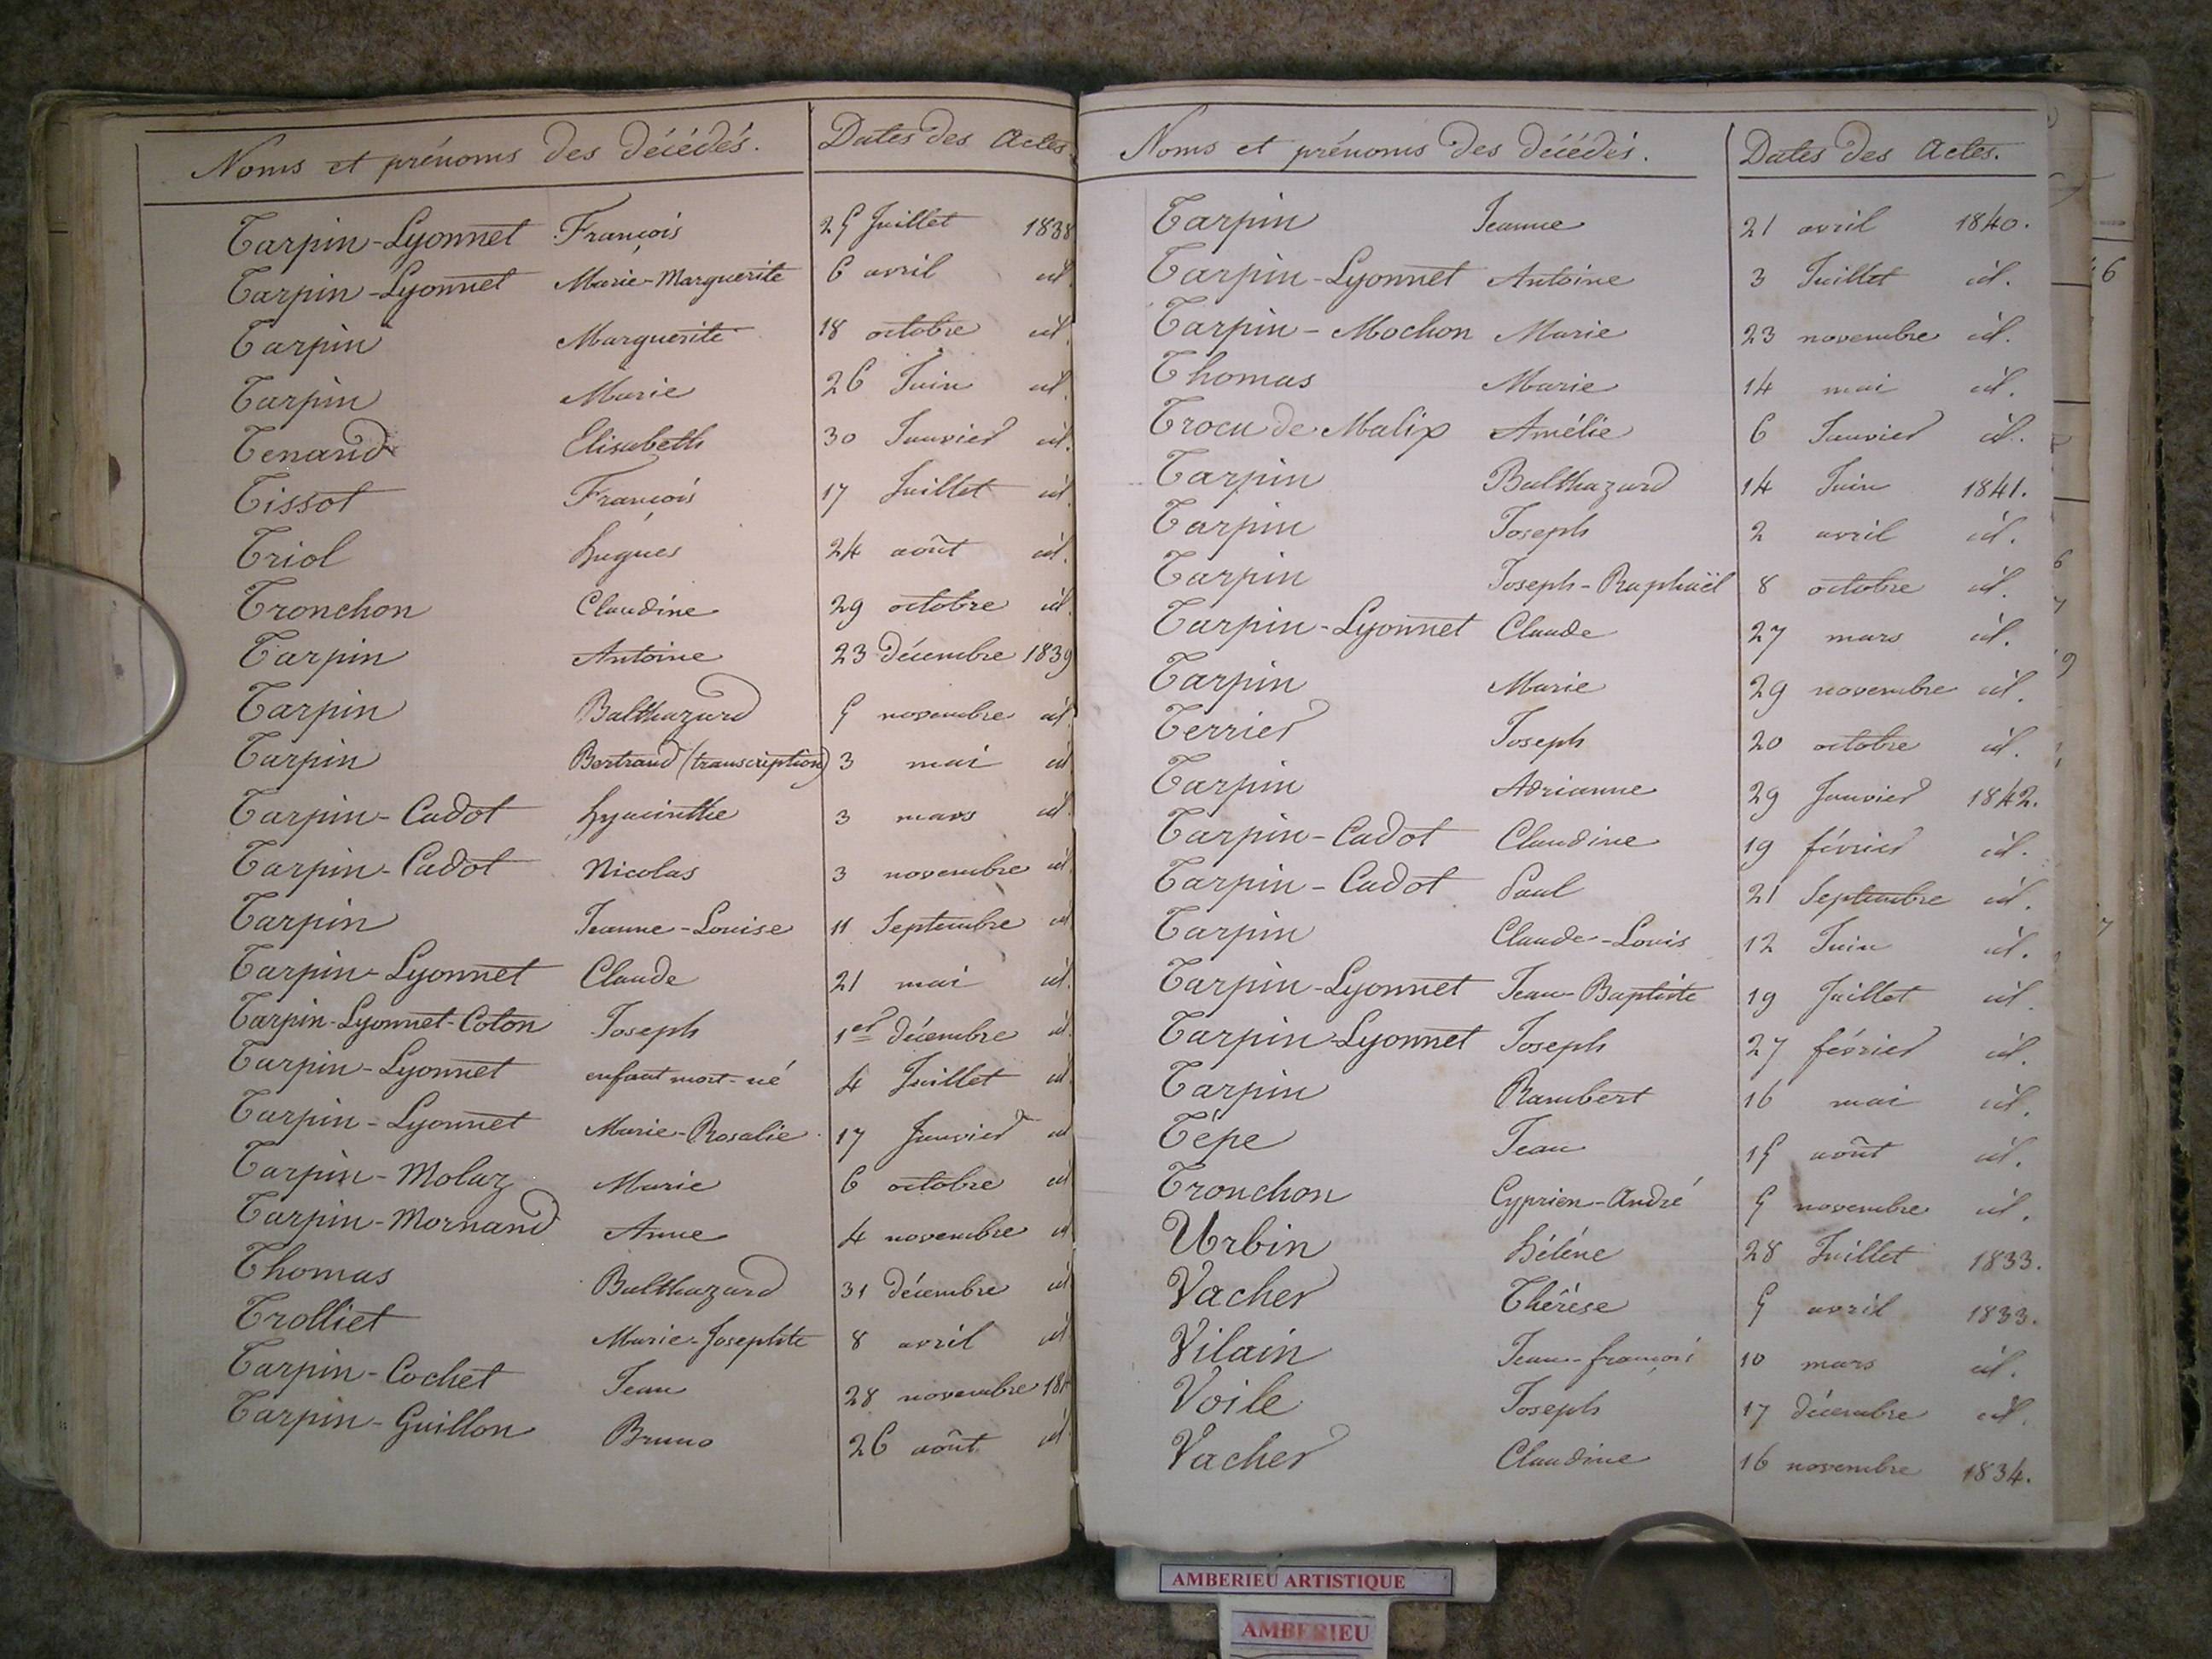 Noms et prénoms des décédés. Dates des Actes
Tarpin-Lyonnet François 25 Juillet 1838
Tarpin-Lyonnet Marie-Marguerite 6 avril id.
Tarpin Marguerite 18 octobre id.
Tarpin Marie 26 Juin id.
Tenand Elisabeth 30 Janvier id.
Tissot François 17 Juillet id.
Triol hugues 24 août id.
Tronchon Claudine 29 octobre id.
Tarpin Antoine 23 décembre 1839
Tarpin Balthazard 5 novembre id
Tarpin Bertrand (transcription) 3 mai id
Tarpin-Cadot hyacinthe 3 mars id.
Tarpin-Cadot Nicolas 3 novembre id
Tarpin Jeanne-Louise 11 Septembre id
Tarpin-Lyonnet Claude 21 mai id.
Tarpin-Lyonnet-Coton Joseph 1er décembre id.
Tarpin-Lyonnet enfant mort-né 4 Juillet id
Tarpin-Lyonnet Marie-Rosalie 17 Janvier id
Tarpin-Molaz Marie 6 octobre id
Tarpin-Mornand Anne 4 novembre id
Thomas Balthazard 31 décembre id
Trolliet Marie-Josephte 8 avril id
Tarpin-Cochet Jean 28 novembre
Tarpin-Guillon Bruno 26 août id
Noms et prénoms des décédés. Dates des Actes.
Tarpin Jeanne 21 avril 1840.
Tarpin-Lyonnet Antoine 3 Juillet id.
Tarpin-Mochon Marie 23 novembre id.
Thomas Marie 14 mai id.
Trocu de Malix Amélie 6 Janvier id.
Tarpin Balthazard 14 Juin 1841.
Tarpin Joseph 2 avril id.
Tarpin Joseph-Raphaël 8 octobre id.
Tarpin-Lyonnet Claude 27 mars id.
Tarpin Marie 29 novembre id.
Terrier Joseph 20 octobre id.
Tarpin Adrianne 29 Janvier 1842.
Tarpin-Cadot Claudine 19 février id.
Tarpin-Cadot Paul 21 Septembre id.
Tarpin Claude-Louis 12 Juin id.
Tarpin-Lyonnet Jean-Baptiste 19 Juillet id.
Tarpin-Lyonnet Joseph 27 février id.
Tarpin Rambert 16 mai id.
Tépe Jean 15 août id.
Tronchon Cyprien-André 5 novembre id.
Urbin hélène 28 Juillet 1833.
Vacher Thérèse 5 avril 1833.
Vilain Jean-françois 10 mars id.
Voile Joseph 17 décembre id.
Vacher Claudine 16 novembre 1834.
AMBERIEU ARTISTIQUE
AMBERIEU